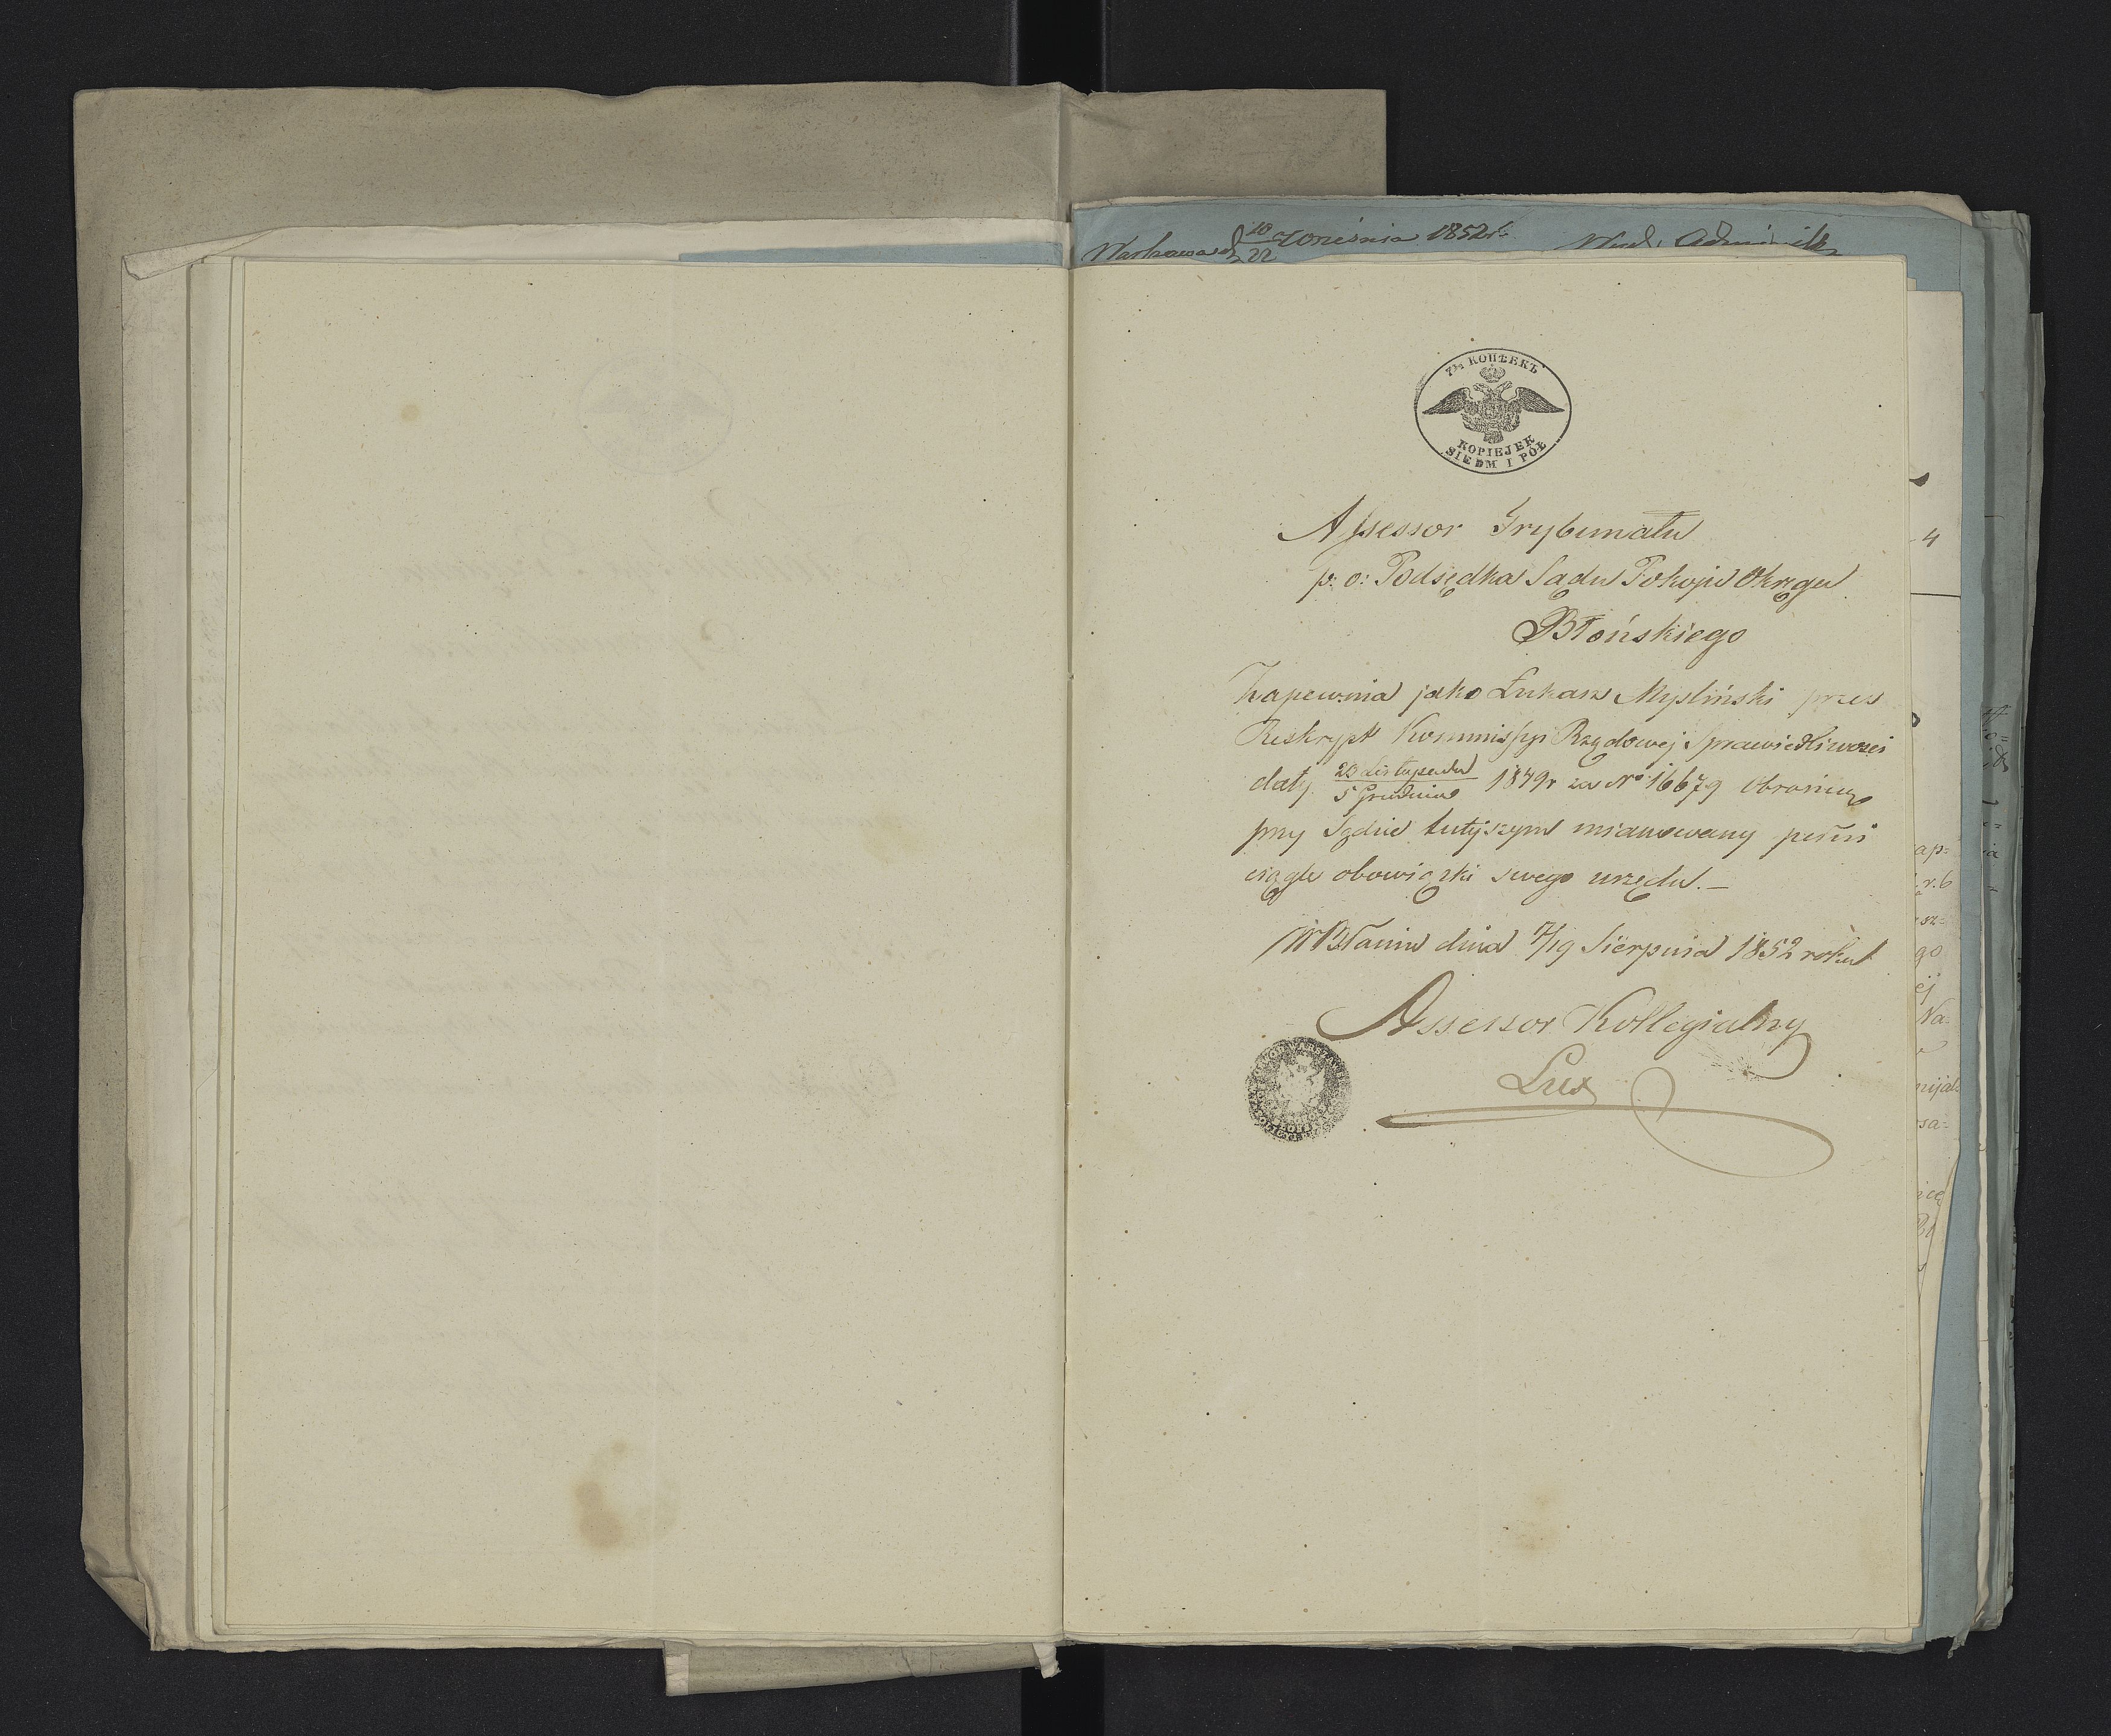 Warszawa d. 10/22 Września 1852 r.
7½ КОПѢЕКЪ
KOPIEJEK
SIEDM I PÓŁ
Assessor Trybunału
p: o: Podsędka Sądu Pokoju Okręgu
Błońskiego
Zapewnia jako Łukasz Myśliński przez
Reskrypt Kommissyi Rządowej Sprawiedliwości
daty 23 Listopada/5 Grudnia 1849 r za No 16679 Obrońcą
przy Sądzie tutejszym mianowany pełni
ciągle obowiązki swego urzędu. —
W Błoniu dnia 7/19 Sierpnia 1852 roku
Assessor Kollegialny
Lux
4